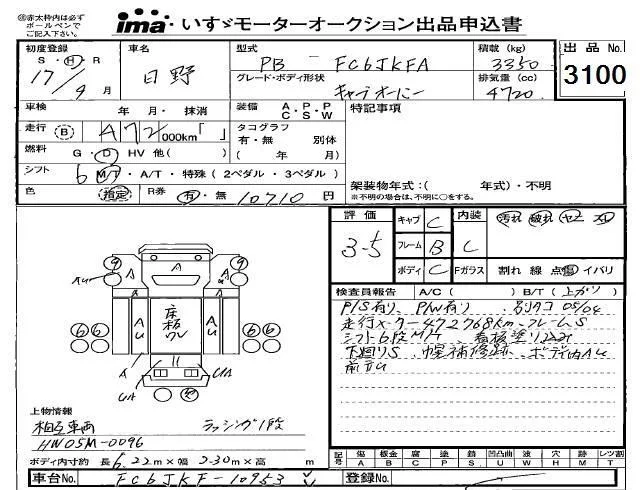 ㊟赤太枠内は必ずボールペンでご記入下さい。
ima・いすゞモーターオークション出品申込書
初度登録 S・H・R 17/9月
車名 日野
型式 PB FC6JKFA
積載(kg) 3350
出品No 3100
グレード・ボディ形状 キャブオーバー
排気量(cc) 4720
車検 年 月・抹消
装備 A・P・P C・S・W
特記事項
走行 (B) A 472 000km「 」
タコグラフ 有・無 別体 ( 年 月)
燃料 G・D・HV 他( )
シフト 6 MT・A/T・特殊(2ペダル・3ペダル)
色 (指定) R券 有・無 10710円
架装物年式:( 年式)・不明
※不明の場合は、不明に○をする。
評価 3-5
キャブ C
フレーム B
ボディ C
内装 C
汚れ 破れ ヤニ
Fガラス 割れ 線 点 イバリ
検査員報告 A/C( ) B/T(上がり)
P/S有り、P/W有り 別タコ 05/04
走行メーター472768km、フレームS
シフト6段M/T 看板塗り
下廻りS 幌補修跡 ボディ内AU
9 9
AU A
A AU 床板 AU A
6 6 6 6
A UA
UA
上物情報
相互車両 ラッシング1段
HW05M-0096
ボディ内寸約 長6.22m×幅2.30m×高 m
記号 傷A 板金B 腐C 塗P 錆S 凹凸曲U 波W 穴H 跡M レツ割T
車台No. FC6JKF-10953
登録No.